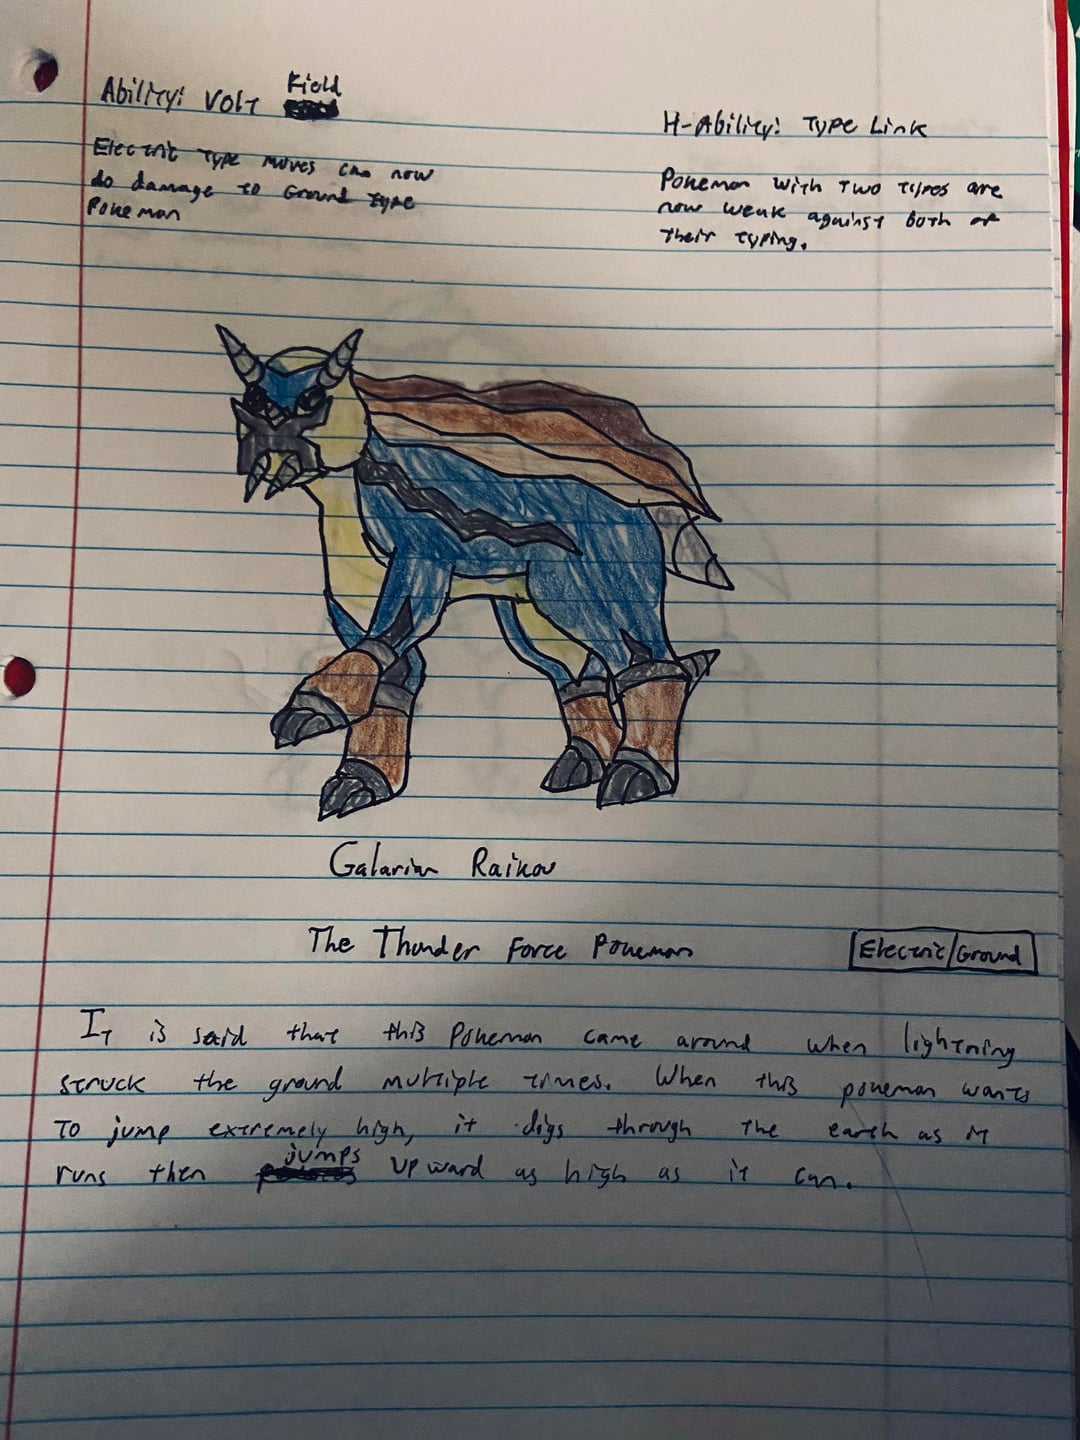 Ability: Volt Field
Electric Type moves can now
do damage to Ground type
Pokemon
H-Ability: Type Link
Pokemon with two types are
now weak against both of
their typing.
Galarian Raikou
The Thunder Force Pokemon
Electric/Ground
It is said that this Pokemon came around when lightning
struck the ground multiple times. When this pokemon wants
to jump extremely high, it digs through the earth as it
runs then jumps upward as high as it can.